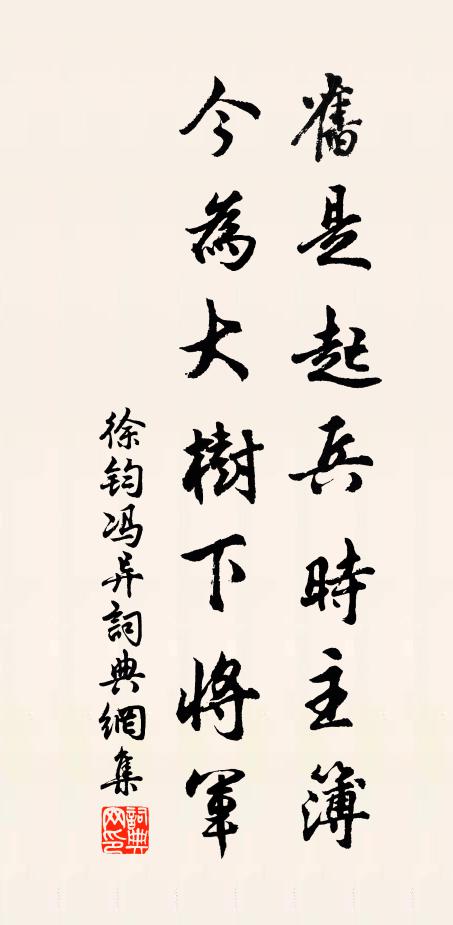 舊是起兵時主簿
今為大樹下將軍
徐鈞冯异詞典網集
詞典网印